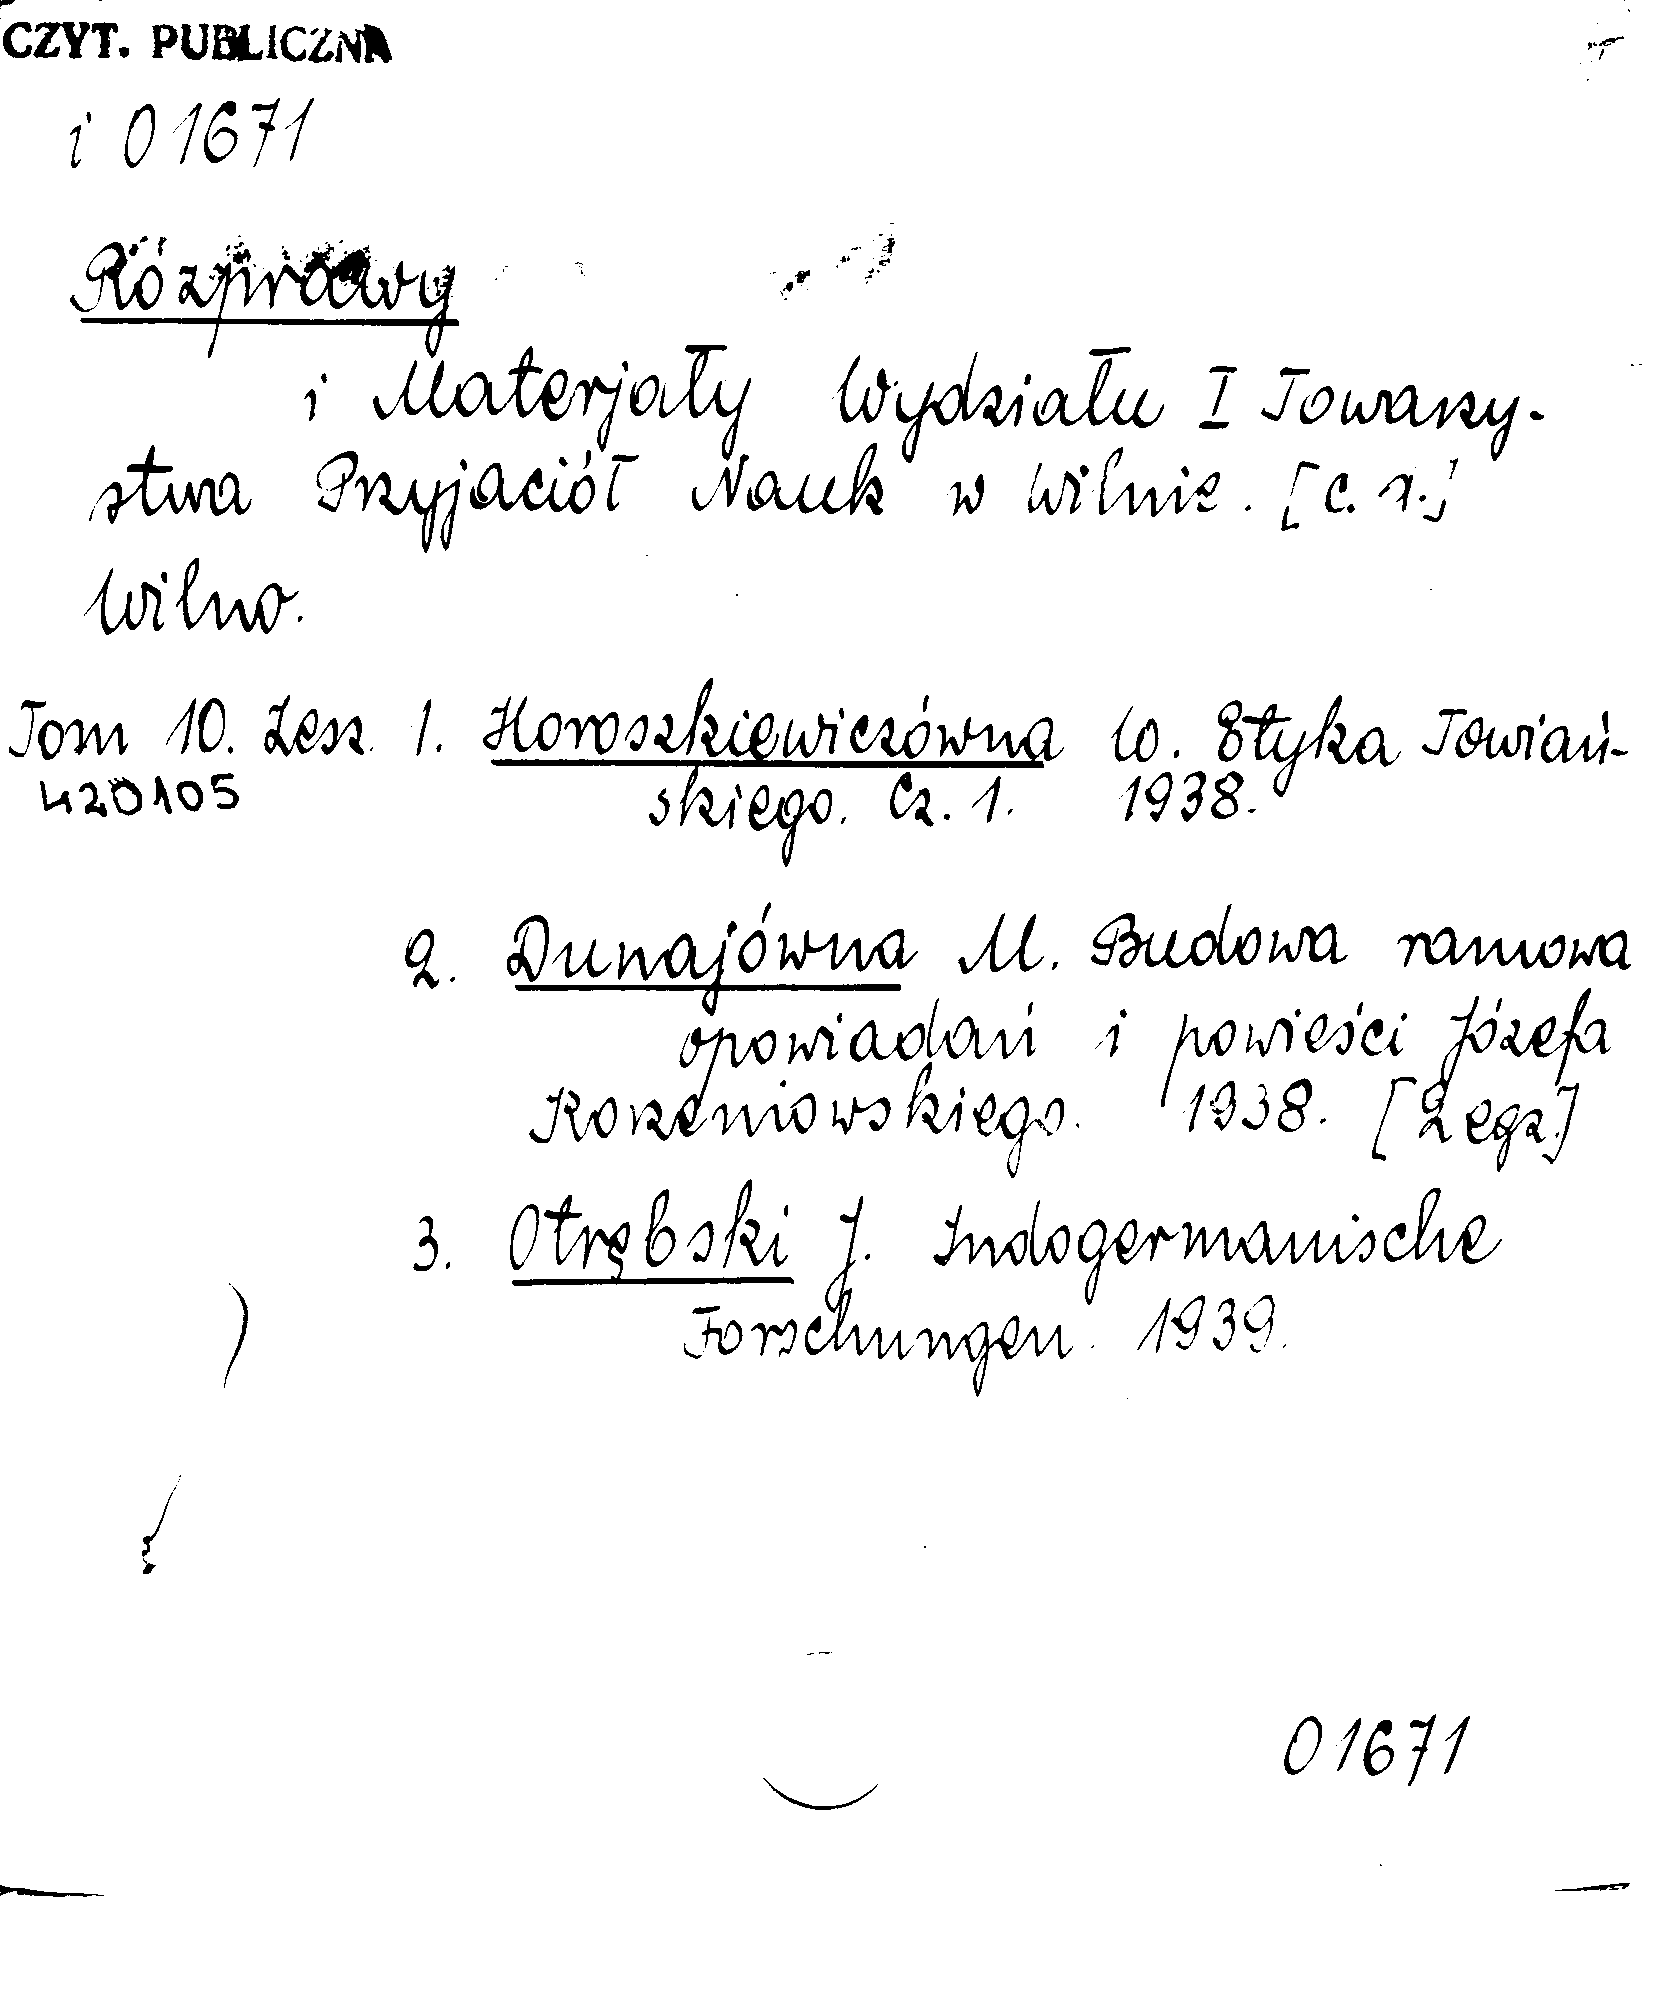 CZYT. PUBLICZNA
i 01671
Rózprawy
i Materjały Wydziału I Towarzy-
stwa Przyjaciół Nauk w Wilnie. [c. 1.]
Wilno.
Tom 10. Zesz. 1. Horoszkiewiczówna W. Etyka Towiań-
420105 skiego. Cz. 1. 1938.
2. Dunajówna M. Budowa ramowa
opowiadań i powieści Józefa
Korzeniowskiego. 1938. [2 egz.]
3. Otrębski J. Indogermanische
Forschungen. 1939.
01671